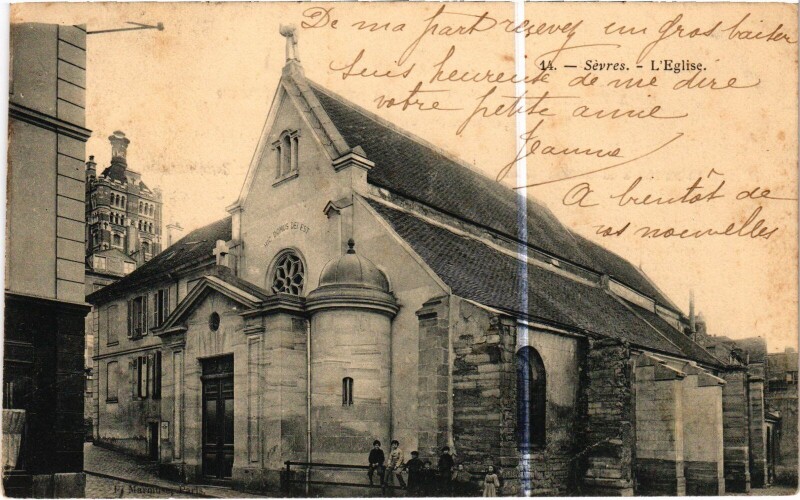 De ma part recevez un gros baiser
14. — Sèvres. - L'Eglise.
Suis heureuse de me dire
votre petite amie
Jeanne
A bientôt de
vos nouvelles
HIC DOMUS DEI EST